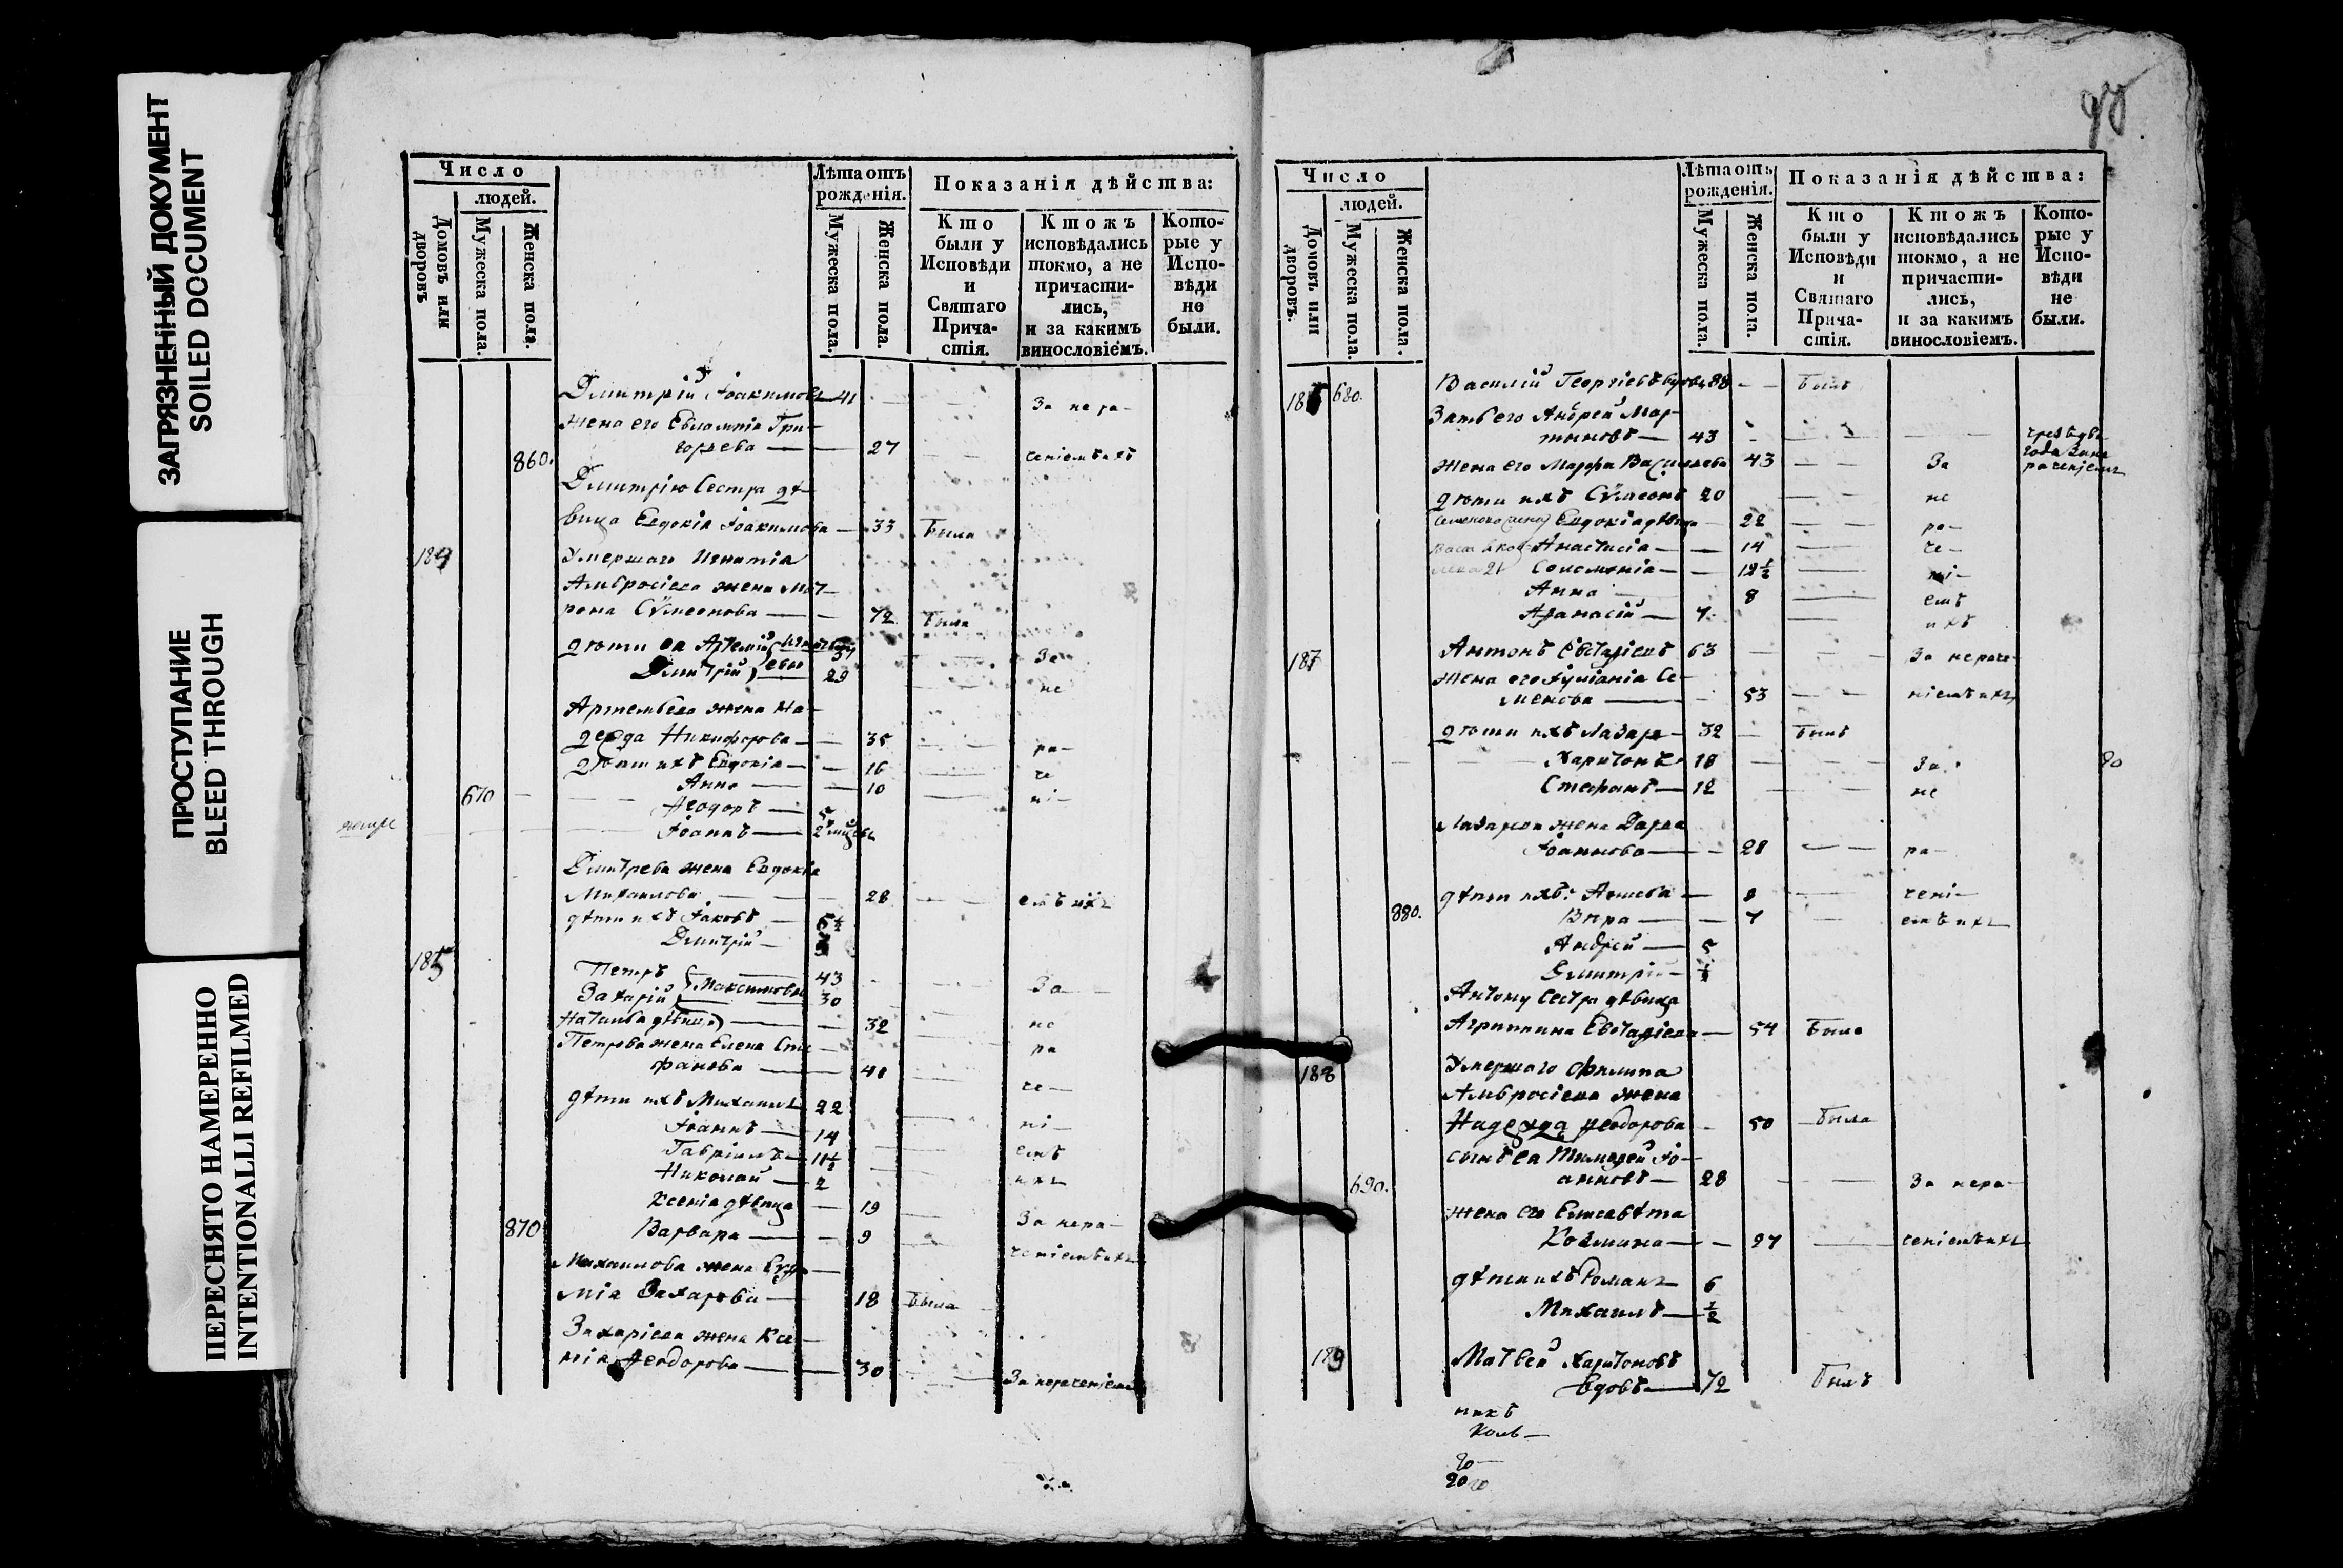 ЗАГРЯЗНЕННЫЙ ДОКУМЕНТ
SOILED DOCUMENT
ПРОСТУПАНИЕ
BLEED THROUGH
ПЕРЕСНЯТО НАМЕРЕННО
INTENTIONALLI REFILMED
Число
людей.
Домовъ или дворовъ
Мужеска пола.
Женска пола.
Лѣта отъ рожденія.
Мужеска пола.
Женска пола.
Показанія дѣйства:
Кто были у Исповѣди и Святаго Прича-стія.
Ктожъ исповѣдались токмо, а не причасти-лись, и за какимъ винословіемъ.
Кото-рые у Испо-вѣди не были.
Димитрій Іоакимовъ 41 За нера-
жена его Евлампія Гри-
860. горьева 27 ченіемъ ихъ
Димитрію сестра дѣ-
вица Евдокія Іоакимова 33 была
184 Умершаго Игнатія
Амвросіева жена Мат-
рона Сѵмеонова 72 была
дѣти ея Артемій За
Димитрій 29 не
Артемьева жена На-
дежда Никифорова 35 ра-
дѣти ихъ Евдокія 16 че
Анна 10
670 Ѳеодоръ 5 ні-
Іоаннъ 2
Димитрева жена Евдокія
Михаилова 28 емъ ихъ
дѣти ихъ Іаковъ
Димитрій
185 Петръ Максимовы 43 За
Захарій 30
Наталья дѣвица 32 не
Петрова жена Елена Сте
фанова 40 ра
че
дѣти ихъ Михаилъ 22
Іоаннъ 14 ні-
Гавріилъ 11½ емъ
Николай 2 ихъ
Ксенія дѣвица 19 За нера-
870 Варвара 9
ченіемъ ихъ
Михаилова жена Еvѳи
мія Захарова 18 была
Захаріева жена Ксе-
нія Ѳеодорова 30 За нераченіемъ
Число
людей.
Домовъ или дворовъ.
Мужеска пола.
Женска пола.
Лѣта отъ рожденія.
Мужеска пола.
Женска пола.
Показанія дѣйства:
Кто были у Исповѣди и Святаго Прича-стія.
Ктожъ исповѣдались токмо, а не причасти-лись, и за какимъ винословіемъ.
Кото-рые у Испо-вѣди не были.
186 680. Василій Георгіевъ вдовъ 88 былъ
Зять его Андрей Мар-
тиновъ 43
жена его Марѳа Васильева 43 За
дѣти ихъ Сѵмеонъ 20 не
Евдокія дѣвица 22 ра-
Анастасія 14 че-
Соломонія 12½ ні-
Анна 8 емъ
Аѳанасій 4 ихъ
187 Антонъ Евстаѳіевъ 63 За нераче-
жена его Іуліанія Се-
менова 53 ніемъ ихъ
дѣти ихъ Лазарь 32 былъ
Харитонъ 18 За
Стефанъ 12 не
Лазарева жена Дарья
Іоаннова 28 ра-
дѣти ихъ 8 чені-
880. Вѣра 7 емъ ихъ
Андрей 5
Димитрій ½
Антону сестра дѣвица
Агриппина Евстаѳіева 54 была
188 Умершаго Филиппа
Амвросіева жена
Надежда Ѳеодорова 50 была
сынъ ея Тимоѳей Іо-
690. анновъ 28 За нера-
жена его Елисавѣта
Козмина 27 ченіемъ ихъ
дѣти ихъ Романъ 6
Михаилъ ½
189 Матвей Харитоновъ
вдовъ 72 былъ